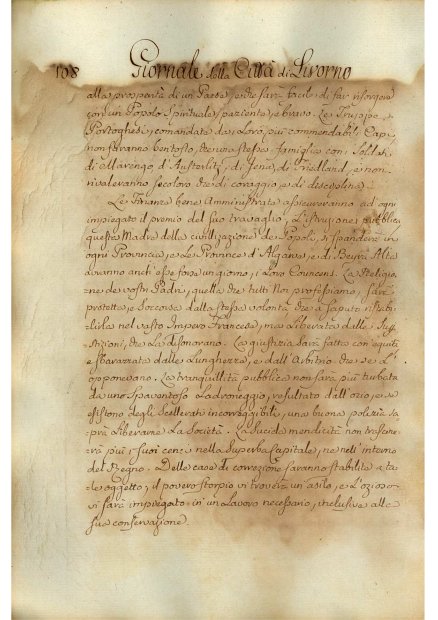 108 Giornale della Città di Livorno
alla prosperità di un Paese, e che sarà facile di far risorgere
con un Popolo Spirituale, paziente, e bravo. Le Truppe
Portoghesi, comandate da i Loro, più commendabili Capi
non faranno ben tosto, che una stessa famiglia con i Soldati
di Marengo, d'Austerlitz, di Jena, di Friedland, e non
rivaleranno seco loro che di coraggio, e di disciplina.
Le Finanze bene Amministrate assicureranno ad ogni
impiegato il premio del suo travaglio, L'istruzione pubblica
questa Madre della civilizzazione dei Popoli, si spanderà in
ogni Provincia, e le Province d'Algarve, e di Beyra Alta
avranno anch'esse forse un giorno, i loro Camoens. La Religio
ne de vostri Padri, quella che tutti Noi professiamo, sarà
protetta, e soccorsa dalla stessa volontà che à saputo ristabi
lirla nel vasto Impero Francese, ma Liberata dalle Su
stizioni, che La disonorano. La giustizia sarà fatta con equità
e sbarazzata dalle Lunghezze, e dall'Arbitrio che se L'
opponevano. La tranquillità pubblica non sarà più turbata
da uno Spaventoso Ladroneggio, resultato dall'ozio, e se
esistono degli Scellerati incorraggibili, una buona polizia sa
prà Liberarne La Società. La Sucida mendicità non trascine
rà più i suoi cenci nella Superba Capitale, ne nell'interno
del Regno. Delle case di correzione saranno stabilite a ta
le oggetto, il povero storpio vi troverà un'asilo, e L'ozioso
vi sarà impiegato in un Lavoro necessario, inclusive alla
sua conservazione.